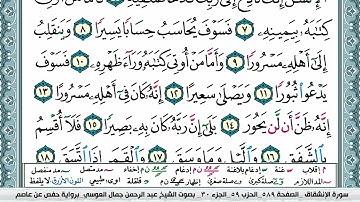 كِتَٰبَهُۥ بِيَمِينِهِۦ ٧ فَسَوْفَ يُحَاسَبُ حِسَابًا يَسِيرًا ٨ وَيَنقَلِبُ
إِلَىٰٓ أَهْلِهِۦ مَسْرُورًا ٩ وَأَمَّا مَنْ أُوتِىَ كِتَٰبَهُۥ وَرَآءَ ظَهْرِهِۦ ١٠ فَسَوْفَ
يَدْعُوا۟ ثُبُورًا ١١ وَيَصْلَىٰ سَعِيرًا ١٢ إِنَّهُۥ كَانَ فِىٓ أَهْلِهِۦ مَسْرُورًا ١٣
إِنَّهُۥ ظَنَّ أَن لَّن يَحُورَ ١٤ بَلَىٰٓ إِنَّ رَبَّهُۥ كَانَ بِهِۦ بَصِيرًا ١٥ فَلَآ أُقْسِمُ
بِٱلشَّفَقِ ١٦ وَٱلَّيْلِ وَمَا وَسَقَ ١٧ وَٱلْقَمَرِ إِذَا ٱتَّسَقَ ١٨
سورة الإنشقاق . الصفحة ٥٨٩ . الحزب ٥٩ . الجزء ٣٠ . بصوت الشيخ عبد الرحمن جمال العوسي . برواية حفص عن عاصم